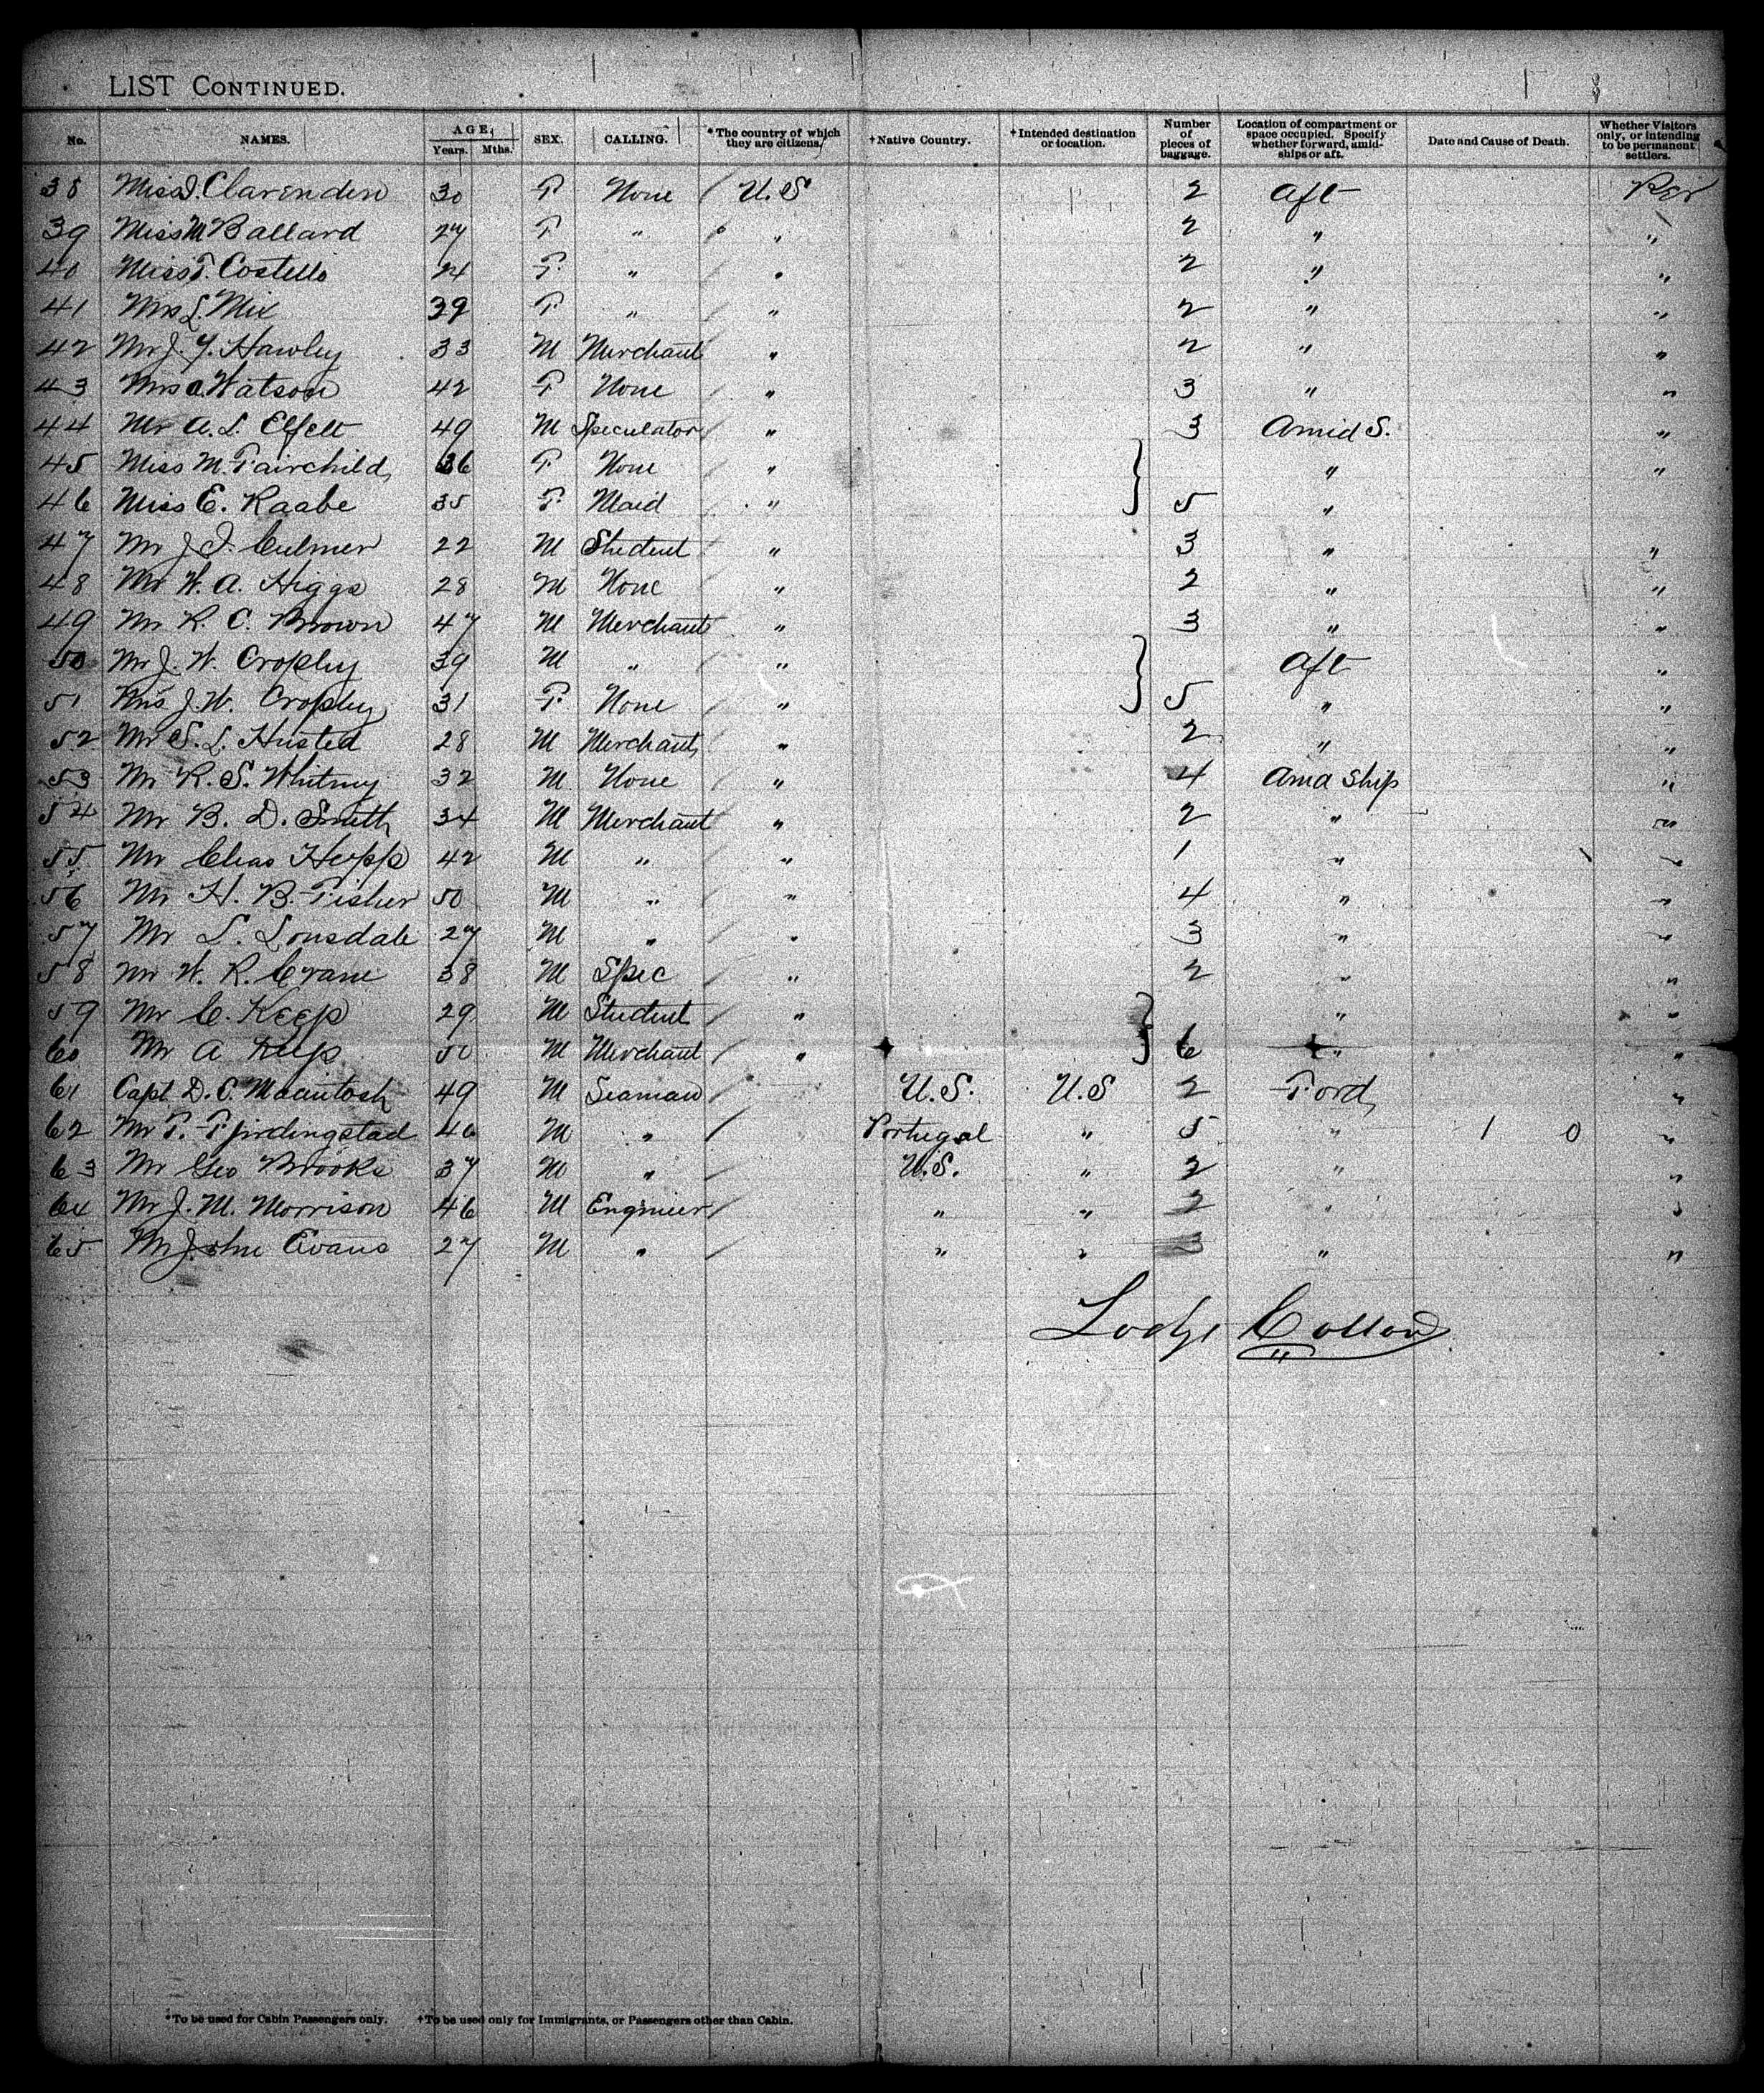 LIST CONTINUED.
No. NAMES. AGE, Years. Mths. SEX. CALLING. *The country of which they are citizens. †Native Country. †Intended destination or location. Number of pieces of baggage. Location of compartment or space occupied. Specify whether forward, amidships or aft. Date and Cause of Death. Whether Visitors only, or intending to be permanent settlers.
38 Miss J. Clarenden 30 F None U.S 2 aft
39 Miss M Ballard 27 F " " 2 " "
40 Miss F. Costello 24 F " " 2 " "
41 Mrs L. Mix 39 F " " 2 " "
42 Mr J. Y. Hawley 33 M Merchant " 2 " "
43 Mrs a. Watson 42 F None " 3 " "
44 Mr A. L. Elfelt 49 M Speculator " 3 Amid S. "
45 Miss M. Fairchild 36 F None " " "
46 Miss E. Raabe 35 F Maid " 5 "
47 Mr J. J. Culmer 22 M Student " 3 " "
48 Mr W. A. Higgs 28 M None " 2 " "
49 Mr R. C. Brown 47 M Merchant " 3 " "
50 Mr J. W. Cropley 39 M " " aft "
51 Mrs J. W. Cropley 31 F None " 5 " "
52 Mr S. L. Husted 28 M Merchant " 2 " "
53 Mr R. S. Whitney 32 M None " 4 Amd Ship "
54 Mr B. D. Smith 34 M Merchant " 2 " "
55 Mr Chas Hepp 42 M " " 1 " "
56 Mr H. B. Fisher 50 M " " 4 " "
57 Mr L. Lonsdale 27 M " " 3 " "
58 Mr W. R. Crane 38 M Spec " 2 " "
59 Mr C. Keep 29 M Student " " "
60 Mr A Keep 50 M Merchant " 6 " "
61 Capt. D. C. Macintosh 49 M Seaman U.S. U.S 2 Ford "
62 Mr F. 40 M " Portugal " 5 " 1 0 "
63 Mr Geo Brooks 37 M " U.S. " 2 " "
64 Mr J. M. Morrison 46 M Engineer " " 2 " "
65 Mr John Evans 27 M " " " 3 " "
*To be used for Cabin Passengers only. †To be used only for Immigrants, or Passengers other than Cabin.